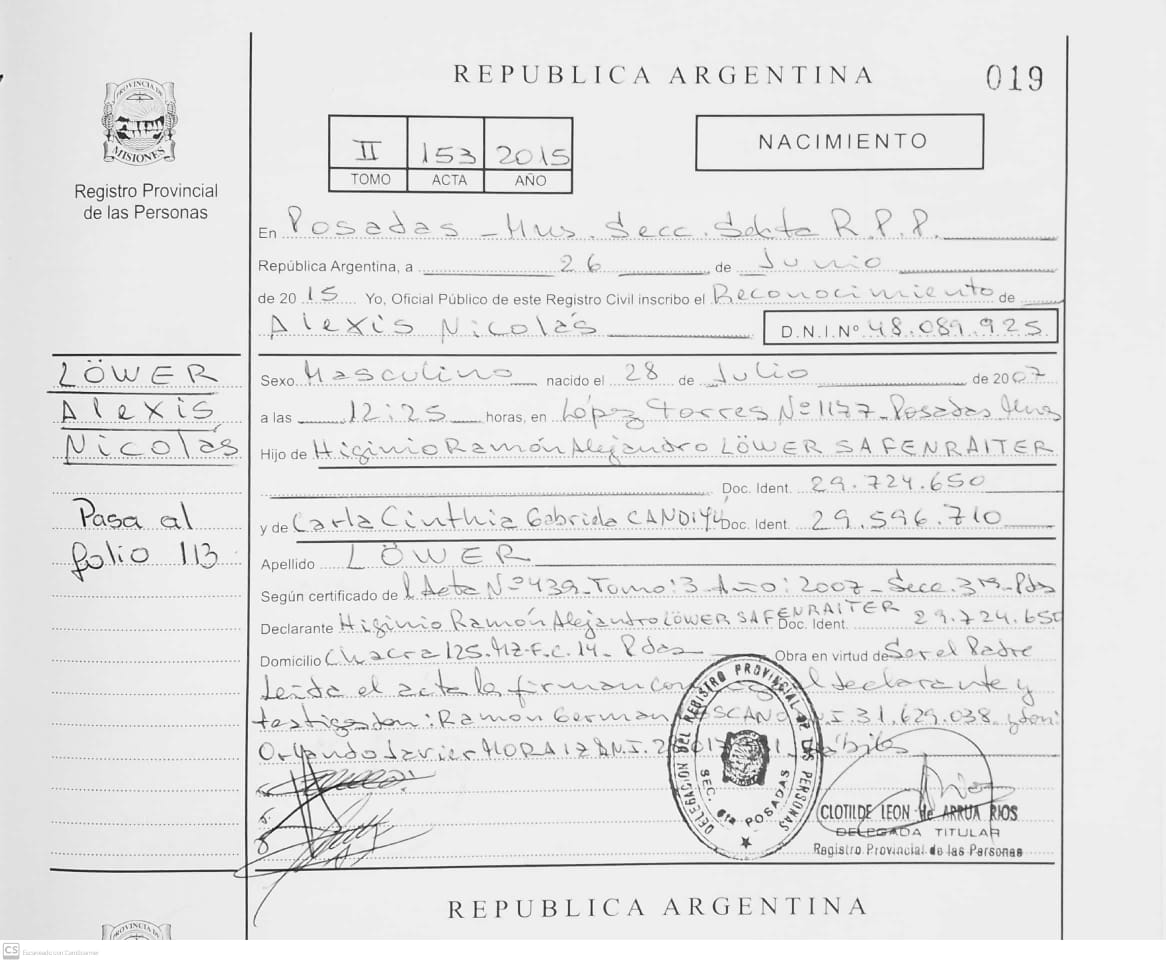 REPUBLICA ARGENTINA
019
PROVINCIA DE MISIONES
Registro Provincial
de las Personas
II 153 2015
TOMO ACTA AÑO
NACIMIENTO
En Posadas - Mns. Secc. Sexta R.P.P.
República Argentina, a 26 de Junio
de 2015 Yo, Oficial Público de este Registro Civil inscribo el Reconocimiento de
Alexis Nicolás D.N.I.Nº 48.089.925
LÖWER
Alexis
Nicolás
Pasa al
folio 113
Sexo Masculino nacido el 28 de Julio de 2007
a las 12:25 horas, en López Torres Nº 1177 - Posadas Mns
Hijo de Higinio Ramón Alejandro LÖWER SAFENRAITER
Doc. Ident. 29.724.650
y de Carla Cinthia Gabriela CANDIYÚ Doc. Ident. 29.596.710
Apellido LÖWER
Según certificado de Acta Nº 439 - Tomo: 3 - Año: 2007 - Secc. 3ra - Pdas
Declarante Higinio Ramón Alejandro LÖWER SAFENRAITER Doc. Ident. 29.724.650
Domicilio Chacra 125. MZ-F.C. 14 - Pdas Obra en virtud de Ser el Padre
Leída el acta la firman declarante y
testigos don: Ramón Germán 31.629.038 y don:
Orlando Javier MORA D.N.I. hábiles
DELEGACION DEL REGISTRO PROVINCIAL DE LAS PERSONAS
SEC. 6ta POSADAS
CLOTILDE LEON de ARRUA RIOS
DELEGADA TITULAR
Registro Provincial de las Personas
REPUBLICA ARGENTINA
CS Escaneado con CamScanner